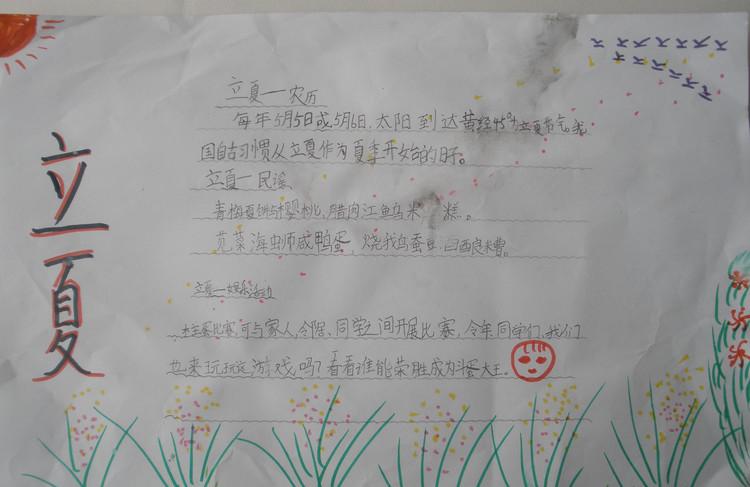 立夏
立夏一农历
每年5月5日或5月6日,太阳到达黄经45°为立夏节气。我
国自古习惯从立夏作为夏季开始的日子。
立夏一民谣
青梅夏饼与樱桃,腊肉江鱼乌米 糕。
苋菜海 咸鸭蛋,烧 蚕豆
立夏一娱乐活动
比赛,可与家人,令 、同学之间开展比赛,今年同学们,我们
也来玩玩这游戏吗?看看谁能荣胜成为斗蛋大王。